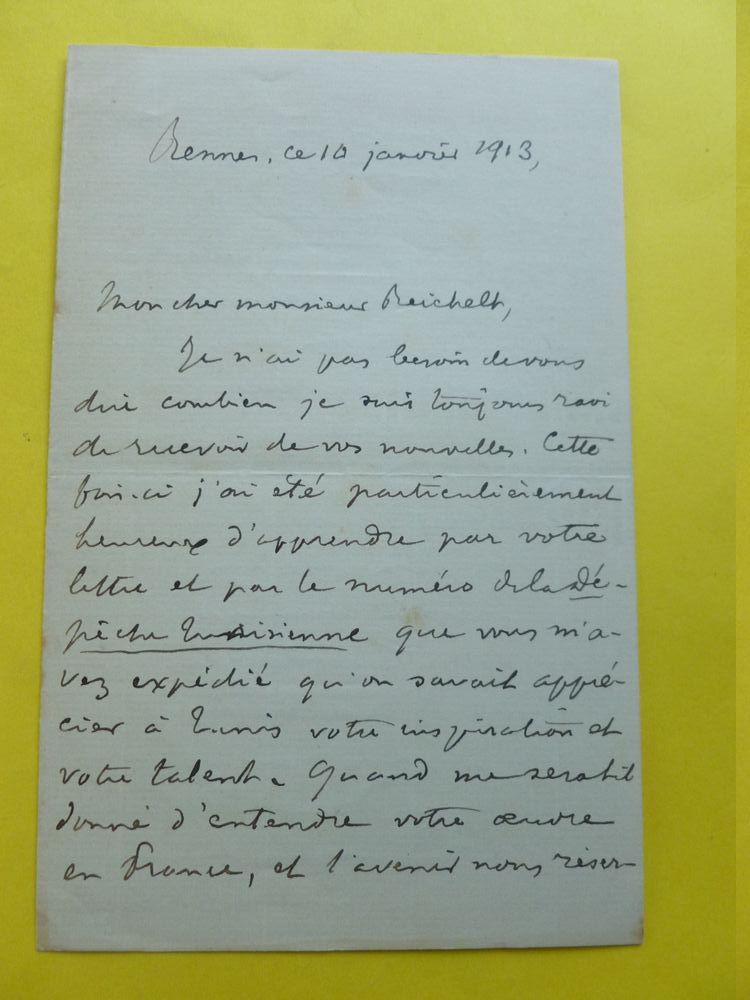 Rennes, ce 10 janvier 1913,
Mon cher monsieur Reichelt,
Je n'ai pas besoin de vous
dire combien je suis toujours ravi
de recevoir de vos nouvelles. Cette
fois-ci j'ai été particulièrement
heureux d'apprendre par votre
lettre et par le numéro de la Dé-
pêche Tunisienne que vous m'a-
vez expédié qu'on savait appré-
cier à Tunis votre inspiration et
votre talent. Quand me sera-t-il
donné d'entendre votre œuvre
en France, et l'avenir nous réser-